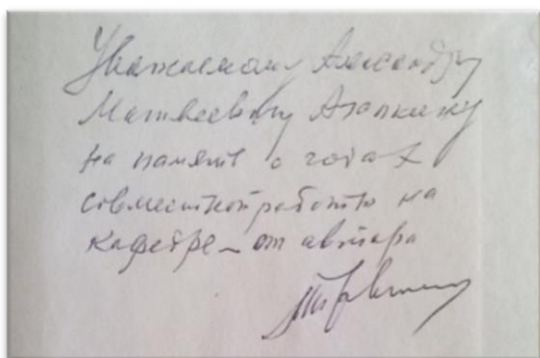 Уважаемому Александру
Матвеевичу Агапкину
на память о годах
совместной работы на
кафедре – от автора